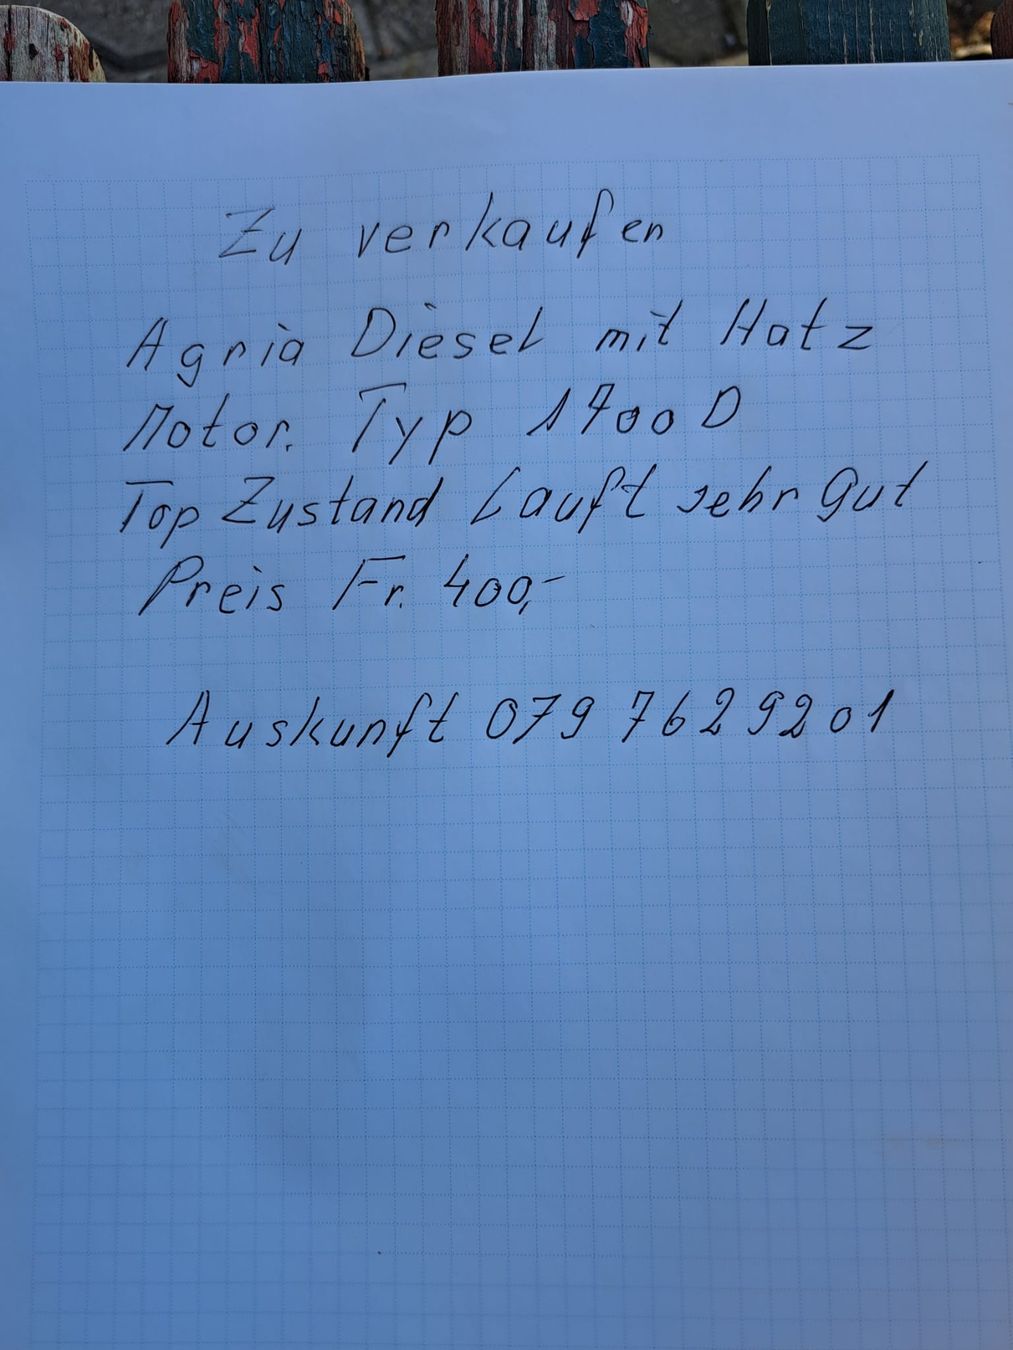 Zu verkaufen
Agria Diesel mit Hatz
Motor. Typ 1700 D
Top Zustand Lauft sehr gut
Preis Fr. 400,-
Auskunft 079 7629201